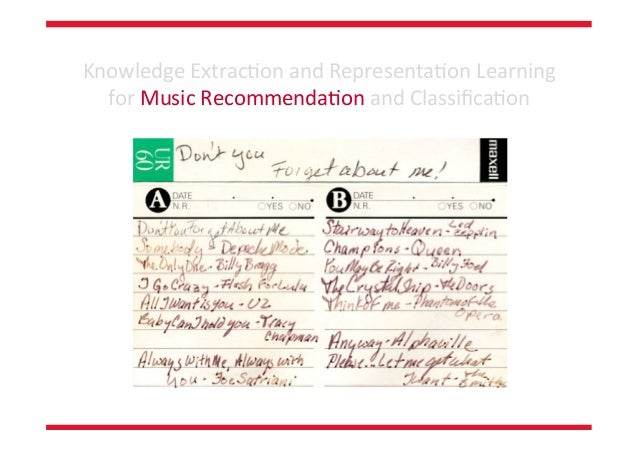 Knowledge Extraction and Representation Learning
for Music Recommendation and Classification
UR
60
Don't you
Forget about me!
maxell
A DATE . . .
N.R. ○YES ○NO
B DATE . . .
N.R. ○YES ○NO
Don't You Forget About Me
Somebody - Depeche Mode
The Only One - Billy Bragg
I Go Crazy - Flesh For Lulu
All I Want is you - U2
Baby Can I hold you - Tracy
Chapman
Always With Me, Always with
You - Joe Satriani
Stairway to Heaven - Led
Zepplin
Champions - Queen
You May Be Right - Billy Joel
The Crystal Ship - The Doors
Think of me - Phantom of the
Opera
Anyway - Alphaville
Please... Let me get what
I want - the
Smiths